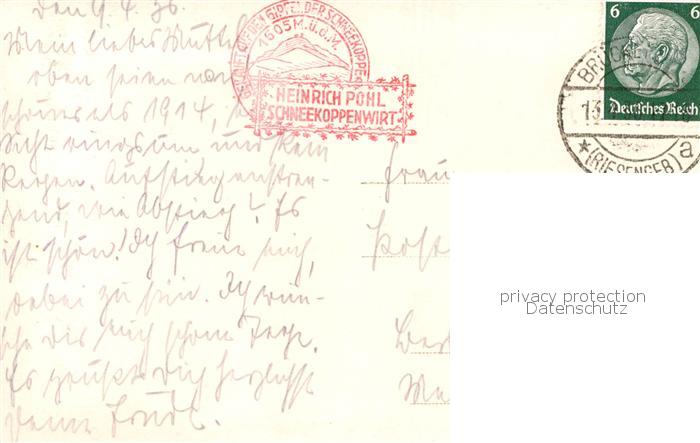 den 9.4.36.
Mein liebes Mutti
oben seien
schöner als 1914,
Sicht ringsum und kein
Regen. Aufstieg anstren-
gend, wie Abstieg! Es
ist schön! Ich freue mich,
dabei zu sein. Ich wün-
sche dir noch schöne Tage.
Es grüßt dich herzlichst
DEN GIPFEL DER SCHNEEKOPPE
1605 M.ü.d.M.
HEINRICH POHL
SCHNEEKOPPENWIRT
6 6
Deutsches Reich
13.
(RIESENGEB.) a
Frau
Post
privacy protection
Datenschutz